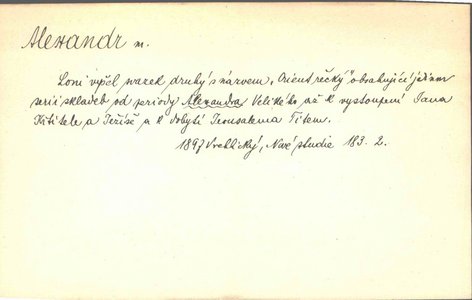 Alexandr m.
Loni vyšel svazek druhý s názvem „Orient řecký" obsahující jednu
serii skladeb od periody Alexandra Velikého až k vystoupení Jana
Křtitele a Ježíše a k dobytí Jerusalema Titem.
1897 Vrchlický, Nové studie 183. 2.